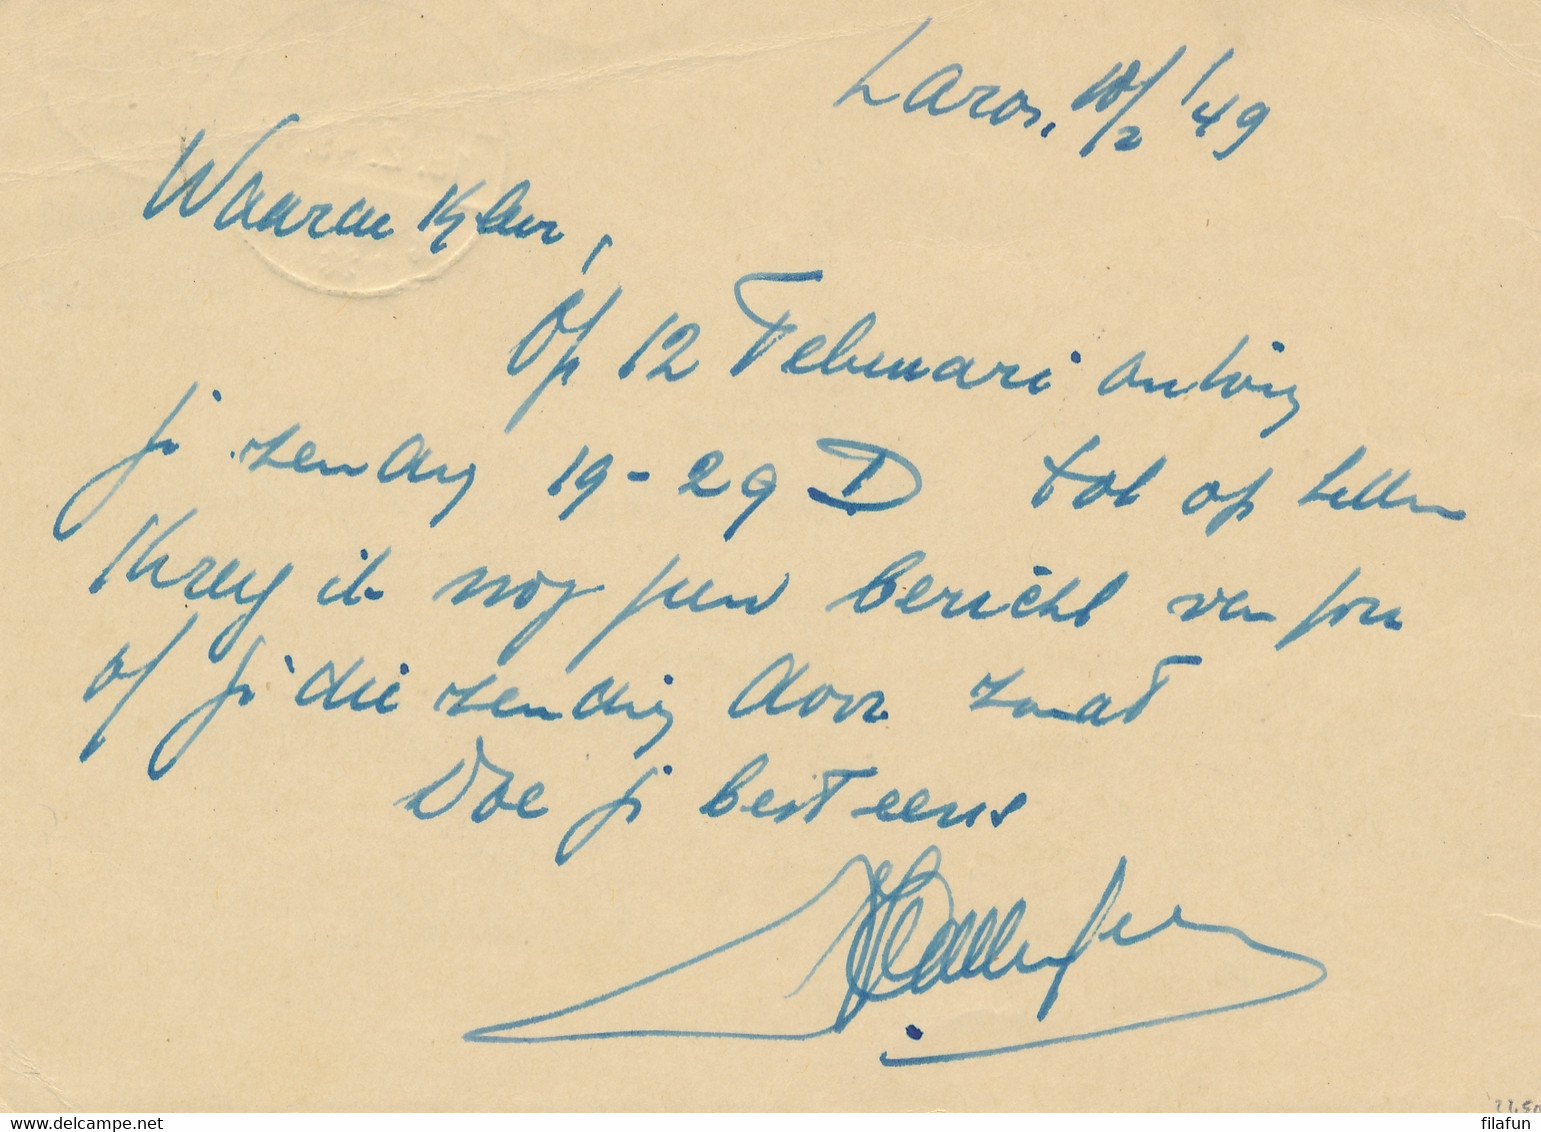 Laren, 10/2 '49
Waarde Klein,
Op 12 Februari ontving
je zending 19-29 D tot op heden
kreeg ik nog geen bericht van jou
of je die zending door zond
Doe je best eens
22,50
filafun